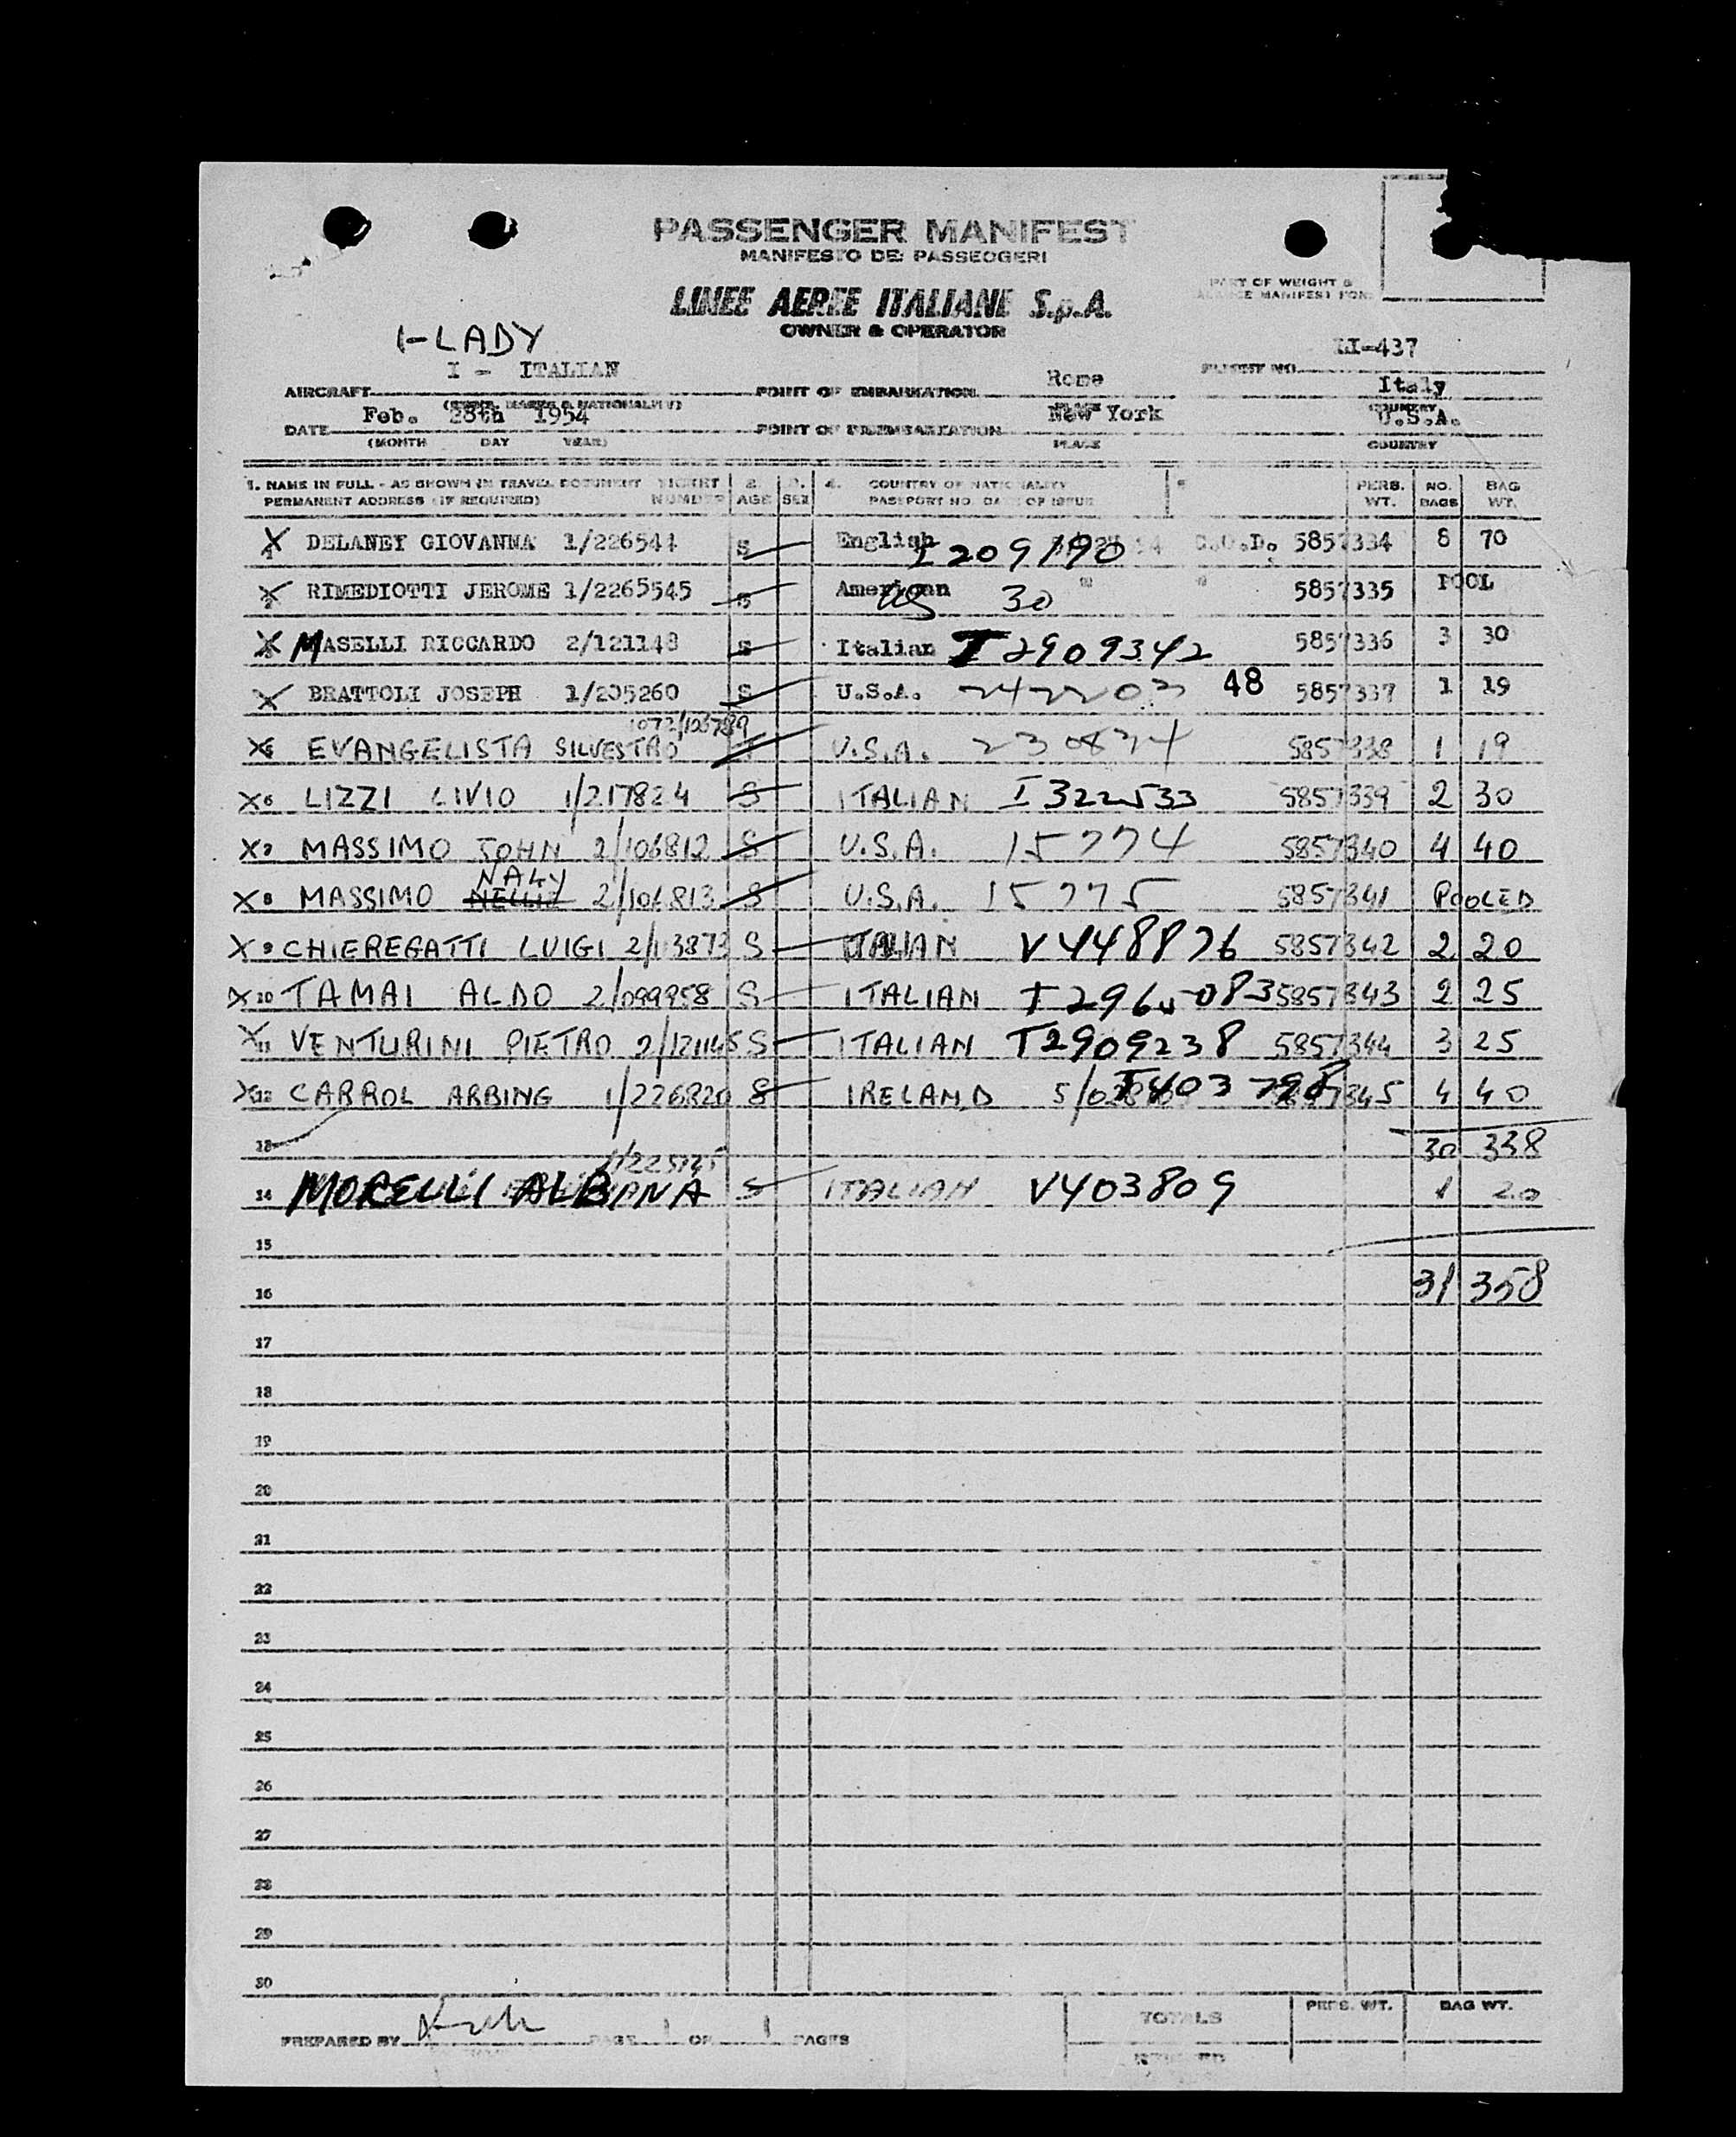 PASSENGER MANIFEST
MANIFESTO DEI PASSEGGERI
PART OF WEIGHT &
MANIFEST FOR
LINEE AEREE ITALIANE S.p.A.
OWNER & OPERATOR
I-LADY
LI-437
I - ITALIAN
AIRCRAFT POINT OF EMBARKATION Rome FLIGHT NO. Italy
(OWNER, MARKS & NATIONALITY) PLACE COUNTRY
DATE Feb. 28th 1954 POINT OF DISEMBARKATION New York U.S.A.
(MONTH DAY YEAR) PLACE COUNTRY
1. NAME IN FULL - AS SHOWN IN TRAVEL DOCUMENT TICKET 2. 3. 4. COUNTRY OF NATIONALITY PERS. NO. BAG
PERMANENT ADDRESS (IF REQUIRED) NUMBER AGE SEX PASSPORT NO. DATE OF ISSUE WT. BAGS WT.
X DELANEY GIOVANNA 1/226544 S English I 209190 C.O.D. 5857334 8 70
X RIMEDIOTTI JEROME 1/2265545 S American US 30 " " 5857335 POOL
X MASELLI RICCARDO 2/121148 S Italian T 2909342 5857336 3 30
X BRATTOLI JOSEPH 1/205260 S U.S.A. 242203 48 5857337 1 19
1072/106789
X5 EVANGELISTA SILVESTRO T U.S.A. 230874 5857338 1 19
X6 LIZZI LIVIO 1/217824 S ITALIAN I 322533 5857339 2 30
X7 MASSIMO JOHN 2/106812 S U.S.A. 15774 5857340 4 40
NALY
X8 MASSIMO NELLIE 2/106813 S U.S.A. 15775 5857341 POOLED
X9 CHIEREGATTI LUIGI 2/113873 S ITALIAN V448876 5857342 2 20
X10 TAMAI ALDO 2/099958 S ITALIAN 5857343 2 25
X11 VENTURINI PIETRO 2/121145 S ITALIAN T2909238 5857344 3 25
X12 CARROL ARBING 1/226820 S IRELAND T403798 4 40
13 30 338
14 MORELLI ALBANA S ITALIAN V403809 1 20
15
16 31 358
17
18
19
20
21
22
23
24
25
26
27
28
29
30
PREPARED BY PAGE 1 OF 1 PAGES TOTALS PERS. WT. BAG WT.